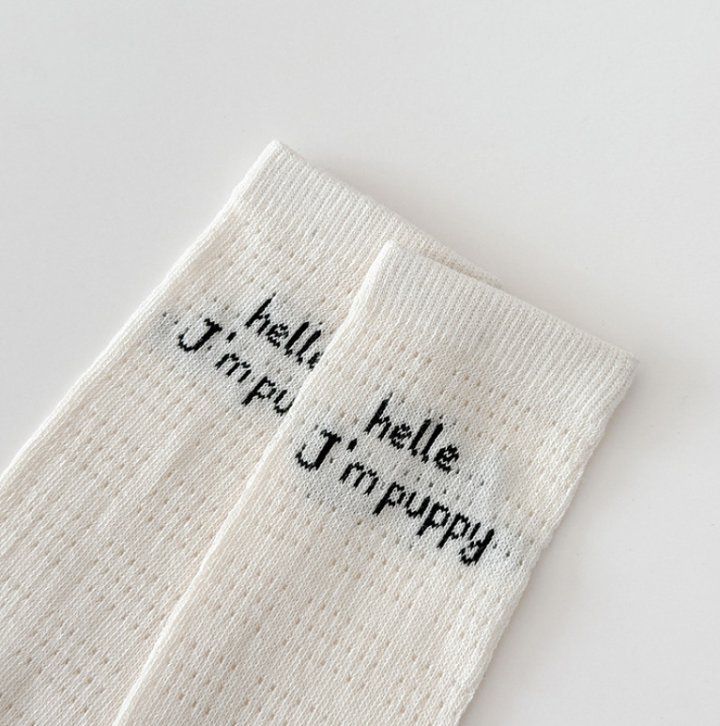 hello
J'm pu
helle
J'm puppy